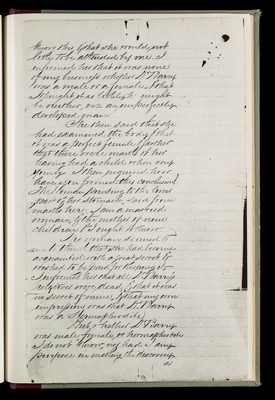 know this & that she would not
to be attended by me. I
informed her that it was none
of my business whether Dr Barry
was a male or a female, & that
I thought it as likely he might
be neither, viz an imperfectly
developed man
She then said that she
had examined the body & that
it was a perfect female & farther
that there were marks of her
having had a child when very
young. I then enquired how
have you formed this conclusion
The woman pointing to the lower
part of her stomach, said from
marks here, I am a married
woman & the mother of nine
children & I ought to know.
The woman seemed to
think that she had become
acquainted with a great secret &
wished to be paid for keeping it
I informed her that all Dr Barry's
relatives were dead, & that it was
no secret of mine, & that my own
impression was that Dr Barry
was a Hermaphrodite
But whether Dr Barry
was male, female, or hermaphrodite
I do not know, nor had I any
purpose in making the discovery
as